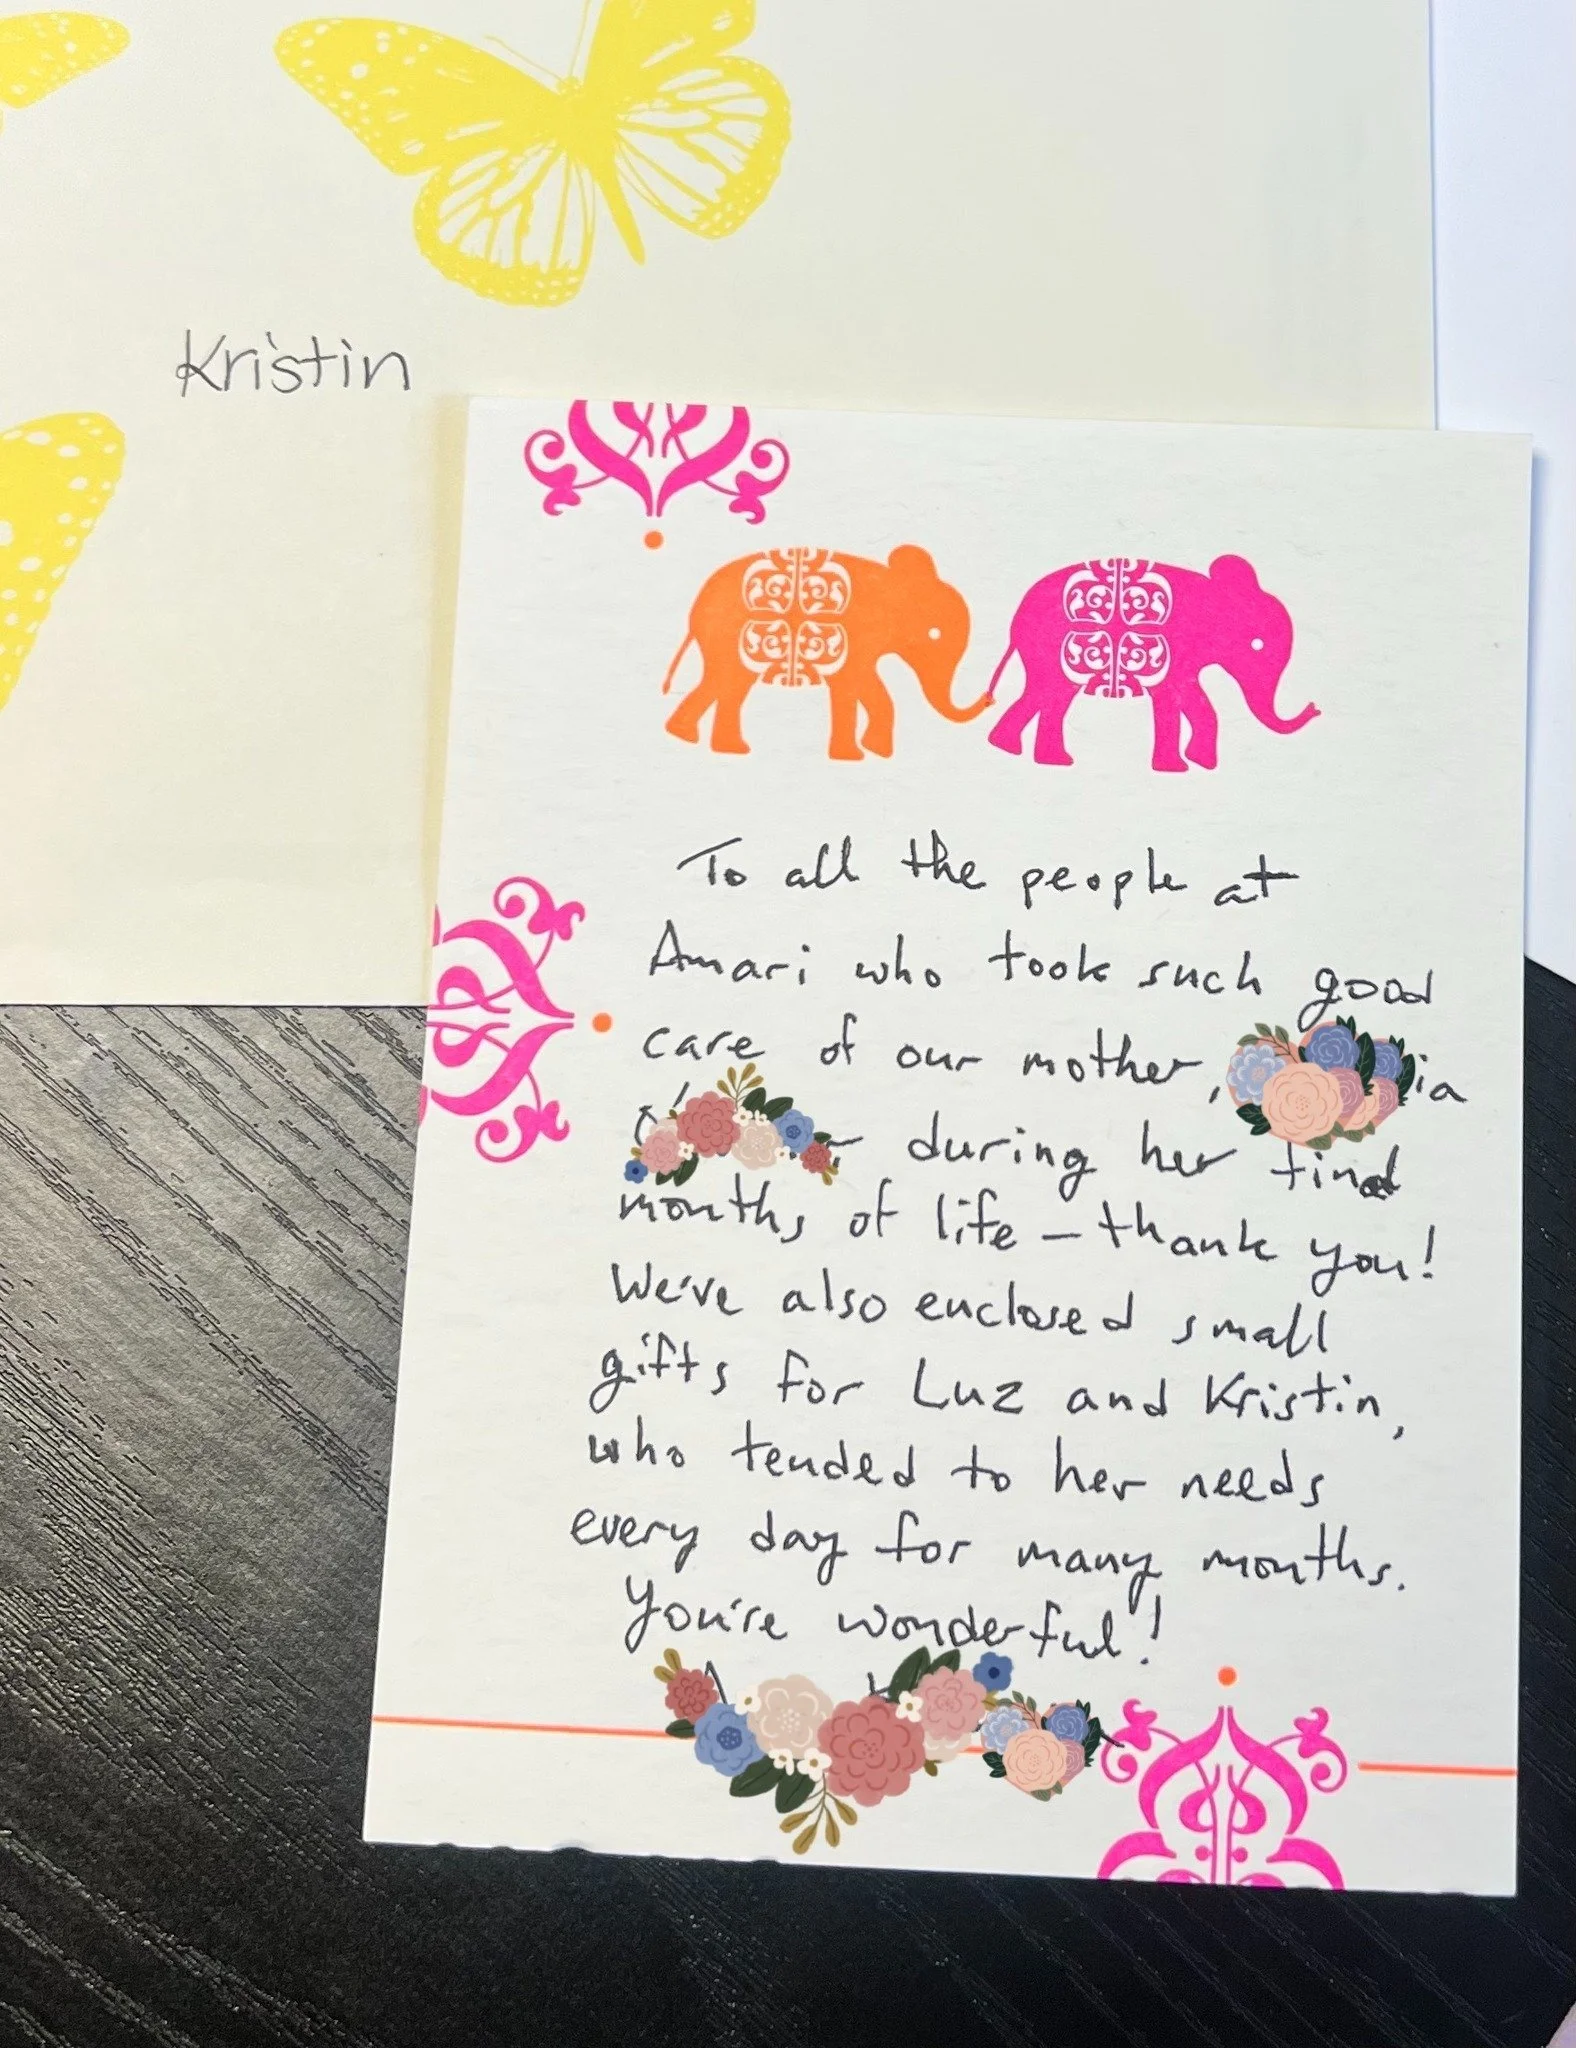 Kristin
To all the people at
Amari who took such good
care of our mother,
during her final
months of life – thank you!
We've also enclosed small
gifts for Luz and Kristin,
who tended to her needs
every day for many months.
You're wonderful!